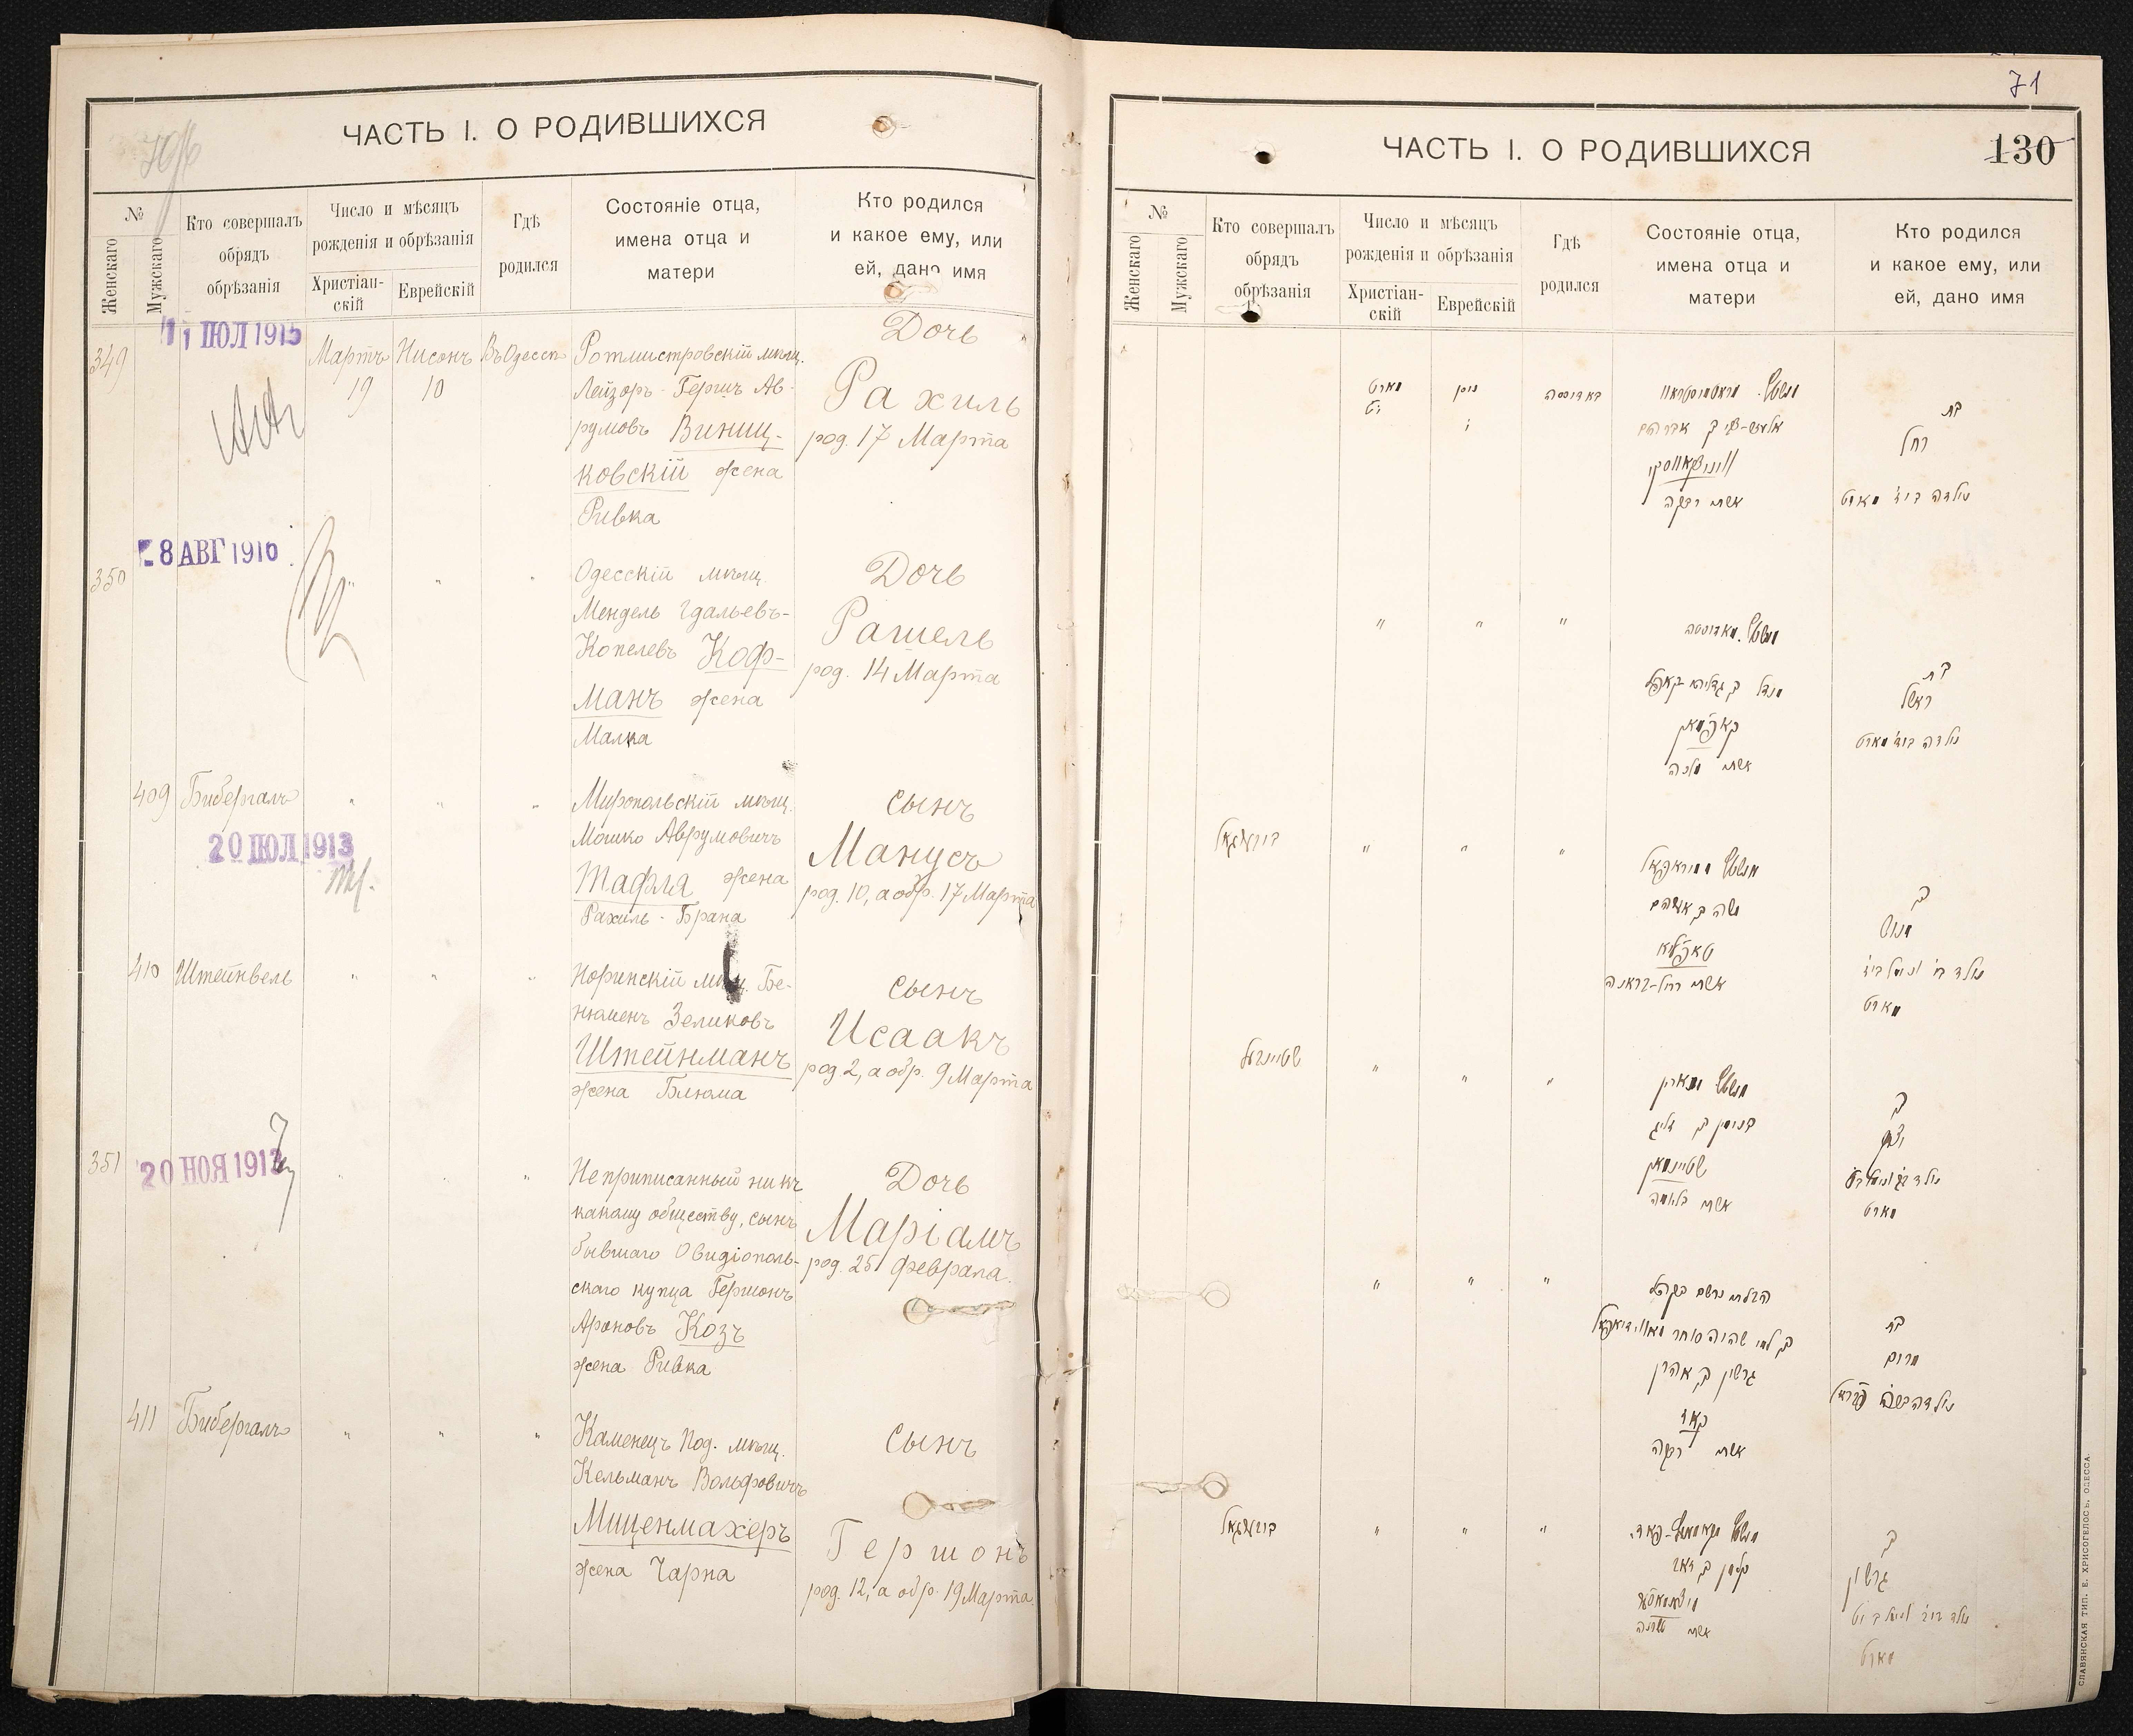 ЧАСТЬ I. О РОДИВШИХСЯ
№
Женскаго
Мужскаго
Кто совершалъ
обрядъ
обрѣзанія
Число и мѣсяцъ
рожденія и обрѣзанія
Христіан-
скій
Еврейскій
Гдѣ
родился
Состояніе отца,
имена отца и
матери
Кто родился
и какое ему, или
ей, дано имя
11 ІЮЛ 1915
349
Мартъ
19
Нисонъ
10
Въ Одессѣ
Ротмистровскій мѣщ.
Лейзоръ-Гершъ Ав-
румовъ Виниц-
ковскій жена
Ривка
Дочь
Рахиль
род. 17 Марта
8 АВГ 1916
350
"
"
"
Одесскій мѣщ.
Мендель Гдальевъ-
Копелевъ Коф-
манъ жена
Малка
Дочь
Рашель
род. 14 Марта
409
Бибергалъ
"
"
"
Миропольскій мѣщ.
Мошко Аврумовичъ
Тафля жена
Рахиль-Брана
сынъ
Манусъ
род. 10, а обр. 17 Марта
20 ІЮЛ 1913
410
Штейнвель
"
"
"
Норинскій мѣщ. Бе-
нюменъ Зеликовъ
Штейнманъ
жена Блюма
сынъ
Исаакъ
род. 2, а обр. 9 Марта
351
20 НОЯ 1913
"
"
Неприписанный ни къ
какому обществу, сынъ
бывшаго Овидіополь-
скаго купца Гершонъ
Ароновъ Козъ
жена Ривка
Дочь
Маріамъ
род. 25 февраля.
411
Бибергалъ
"
"
"
Каменецъ Под. мѣщ.
Кельманъ Вольфовичъ
Миценмахеръ
жена Чарна
сынъ
Гершонъ
род. 12, а обр. 19 Марта.
71
ЧАСТЬ I. О РОДИВШИХСЯ
130
№
Женскаго
Мужскаго
Кто совершалъ
обрядъ
обрѣзанія
Число и мѣсяцъ
рожденія и обрѣзанія
Христіан-
скій
Еврейскій
Гдѣ
родился
Состояніе отца,
имена отца и
матери
Кто родился
и какое ему, или
ей, дано имя
מארט
יט
ניסן
י
באדיססה
אשתו רבקה
בת
רחל
נולדה בי״ז מארט
"
"
"
אשתו מלכה
בת
ראשל
נולדה בי״ד מארט
"
"
"
משה בן אברהם
אשתו רחל-בראנה
בן
מנוס
מארט
שטיינוועל
"
"
"
שטיינמאן
אשתו בלומה
בן
יצחק
מארט
"
"
"
גרשון בן אהרן
קאז
אשתו רבקה
בת
מרים
"
"
"
בן
גרשון
מארט
СЛАВЯНСКАЯ ТИП. Е. ХРИСОГЕЛОСЪ, ОДЕССА.